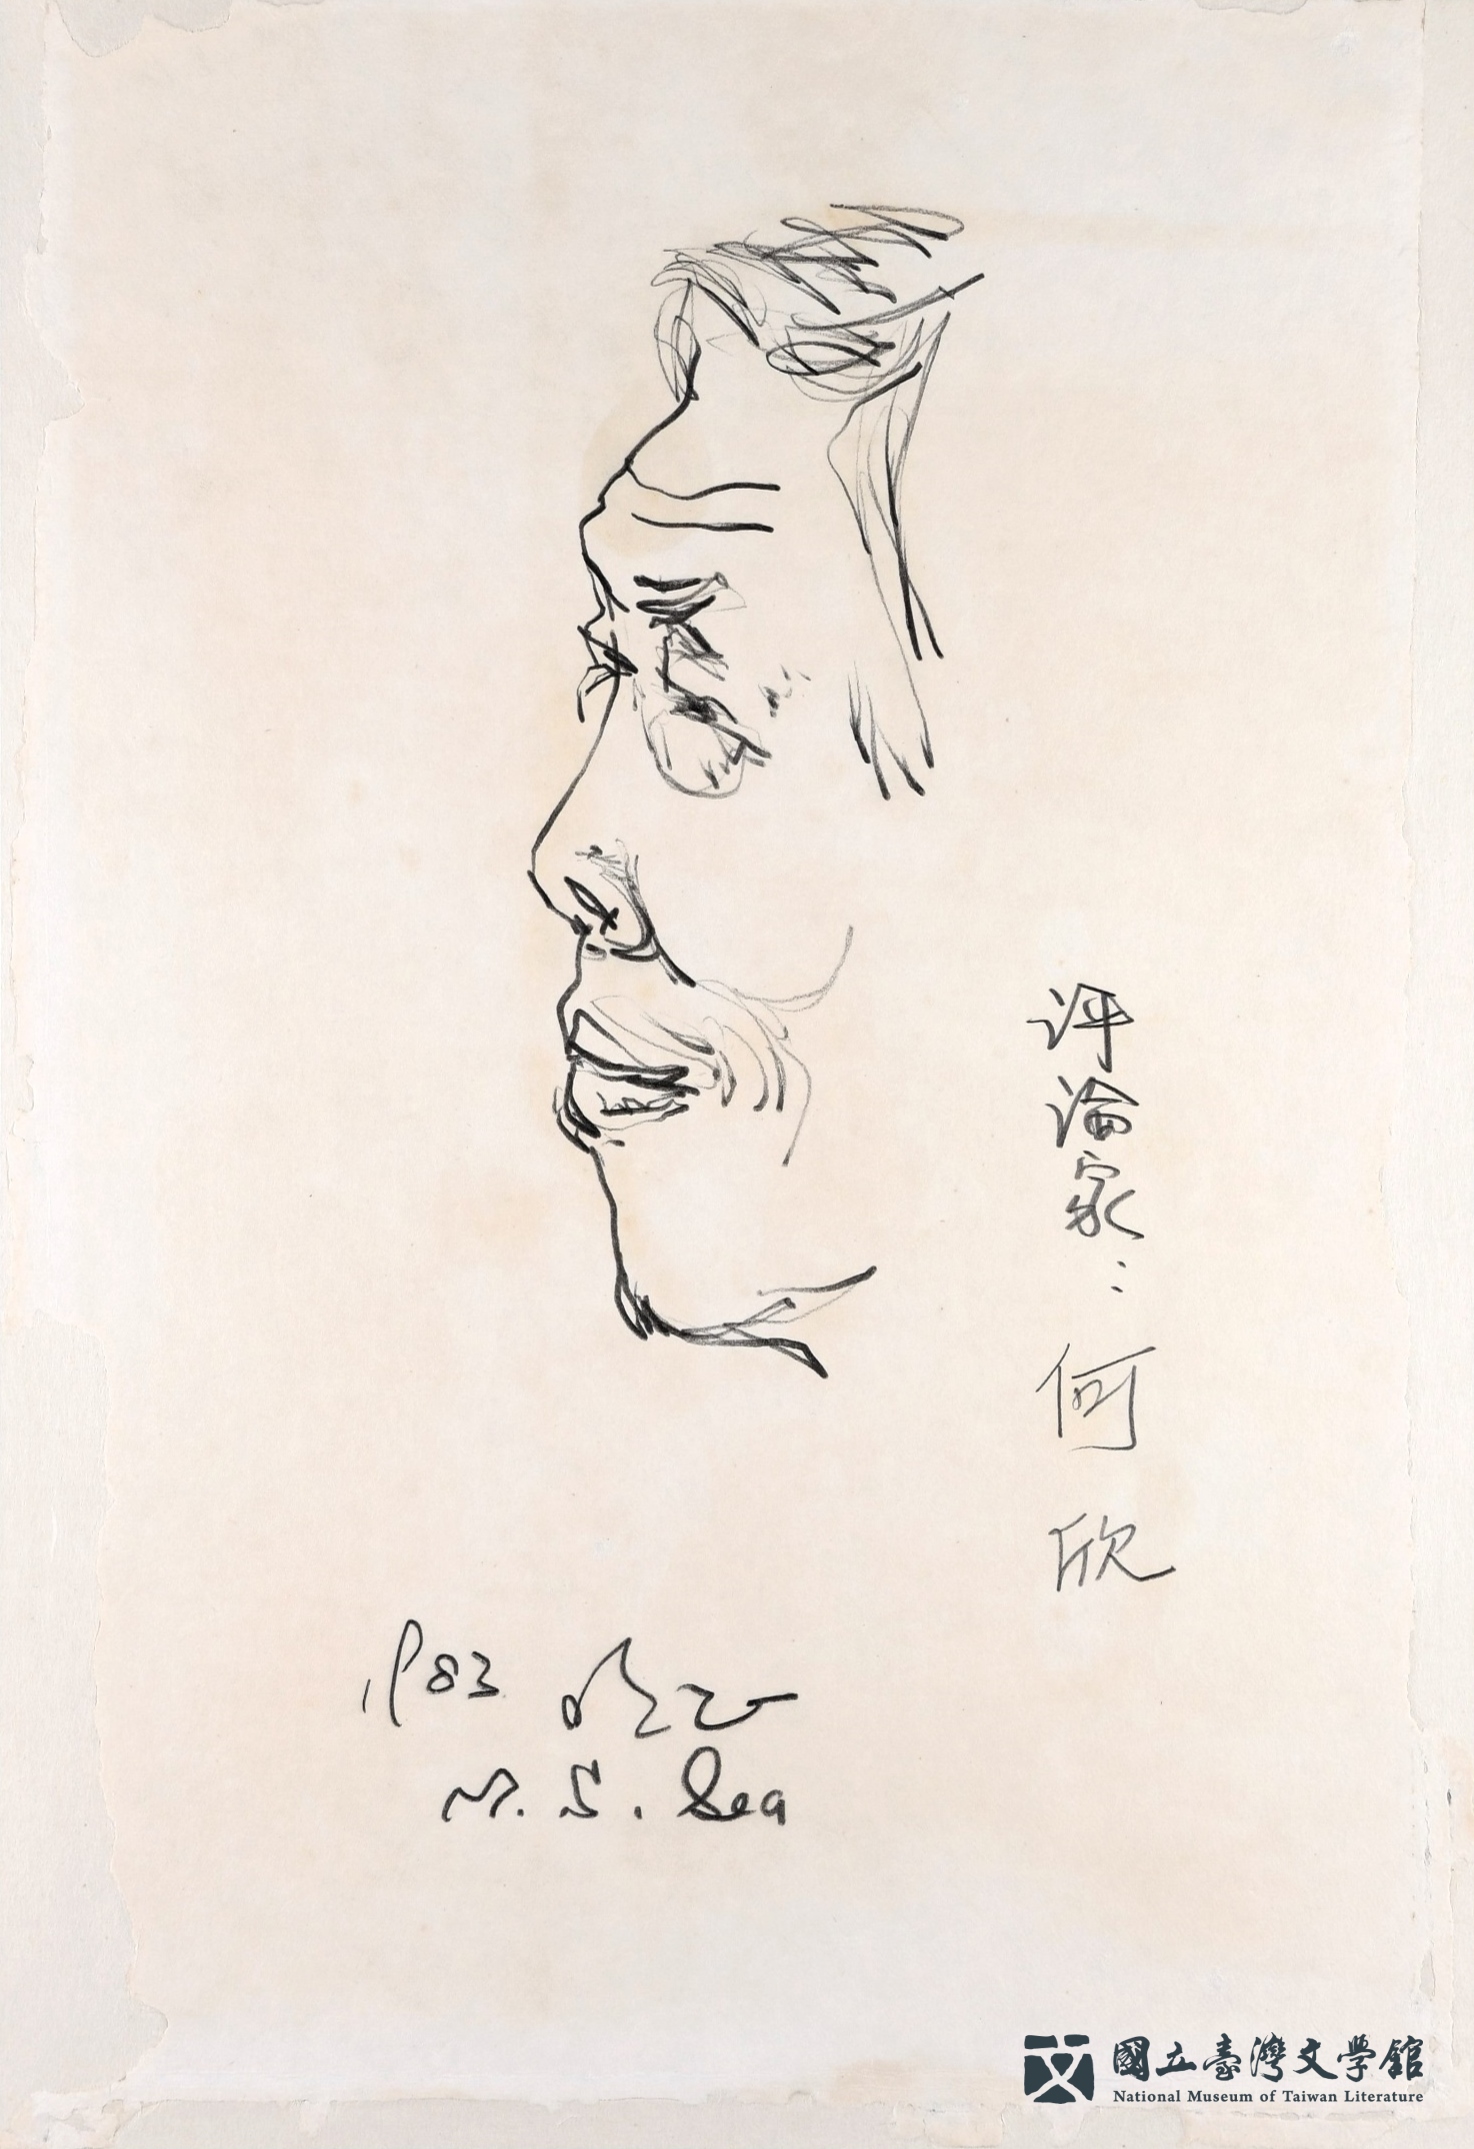 评論家：何欣
1983
M. S. Sea
國立臺灣文學館
National Museum of Taiwan Literature